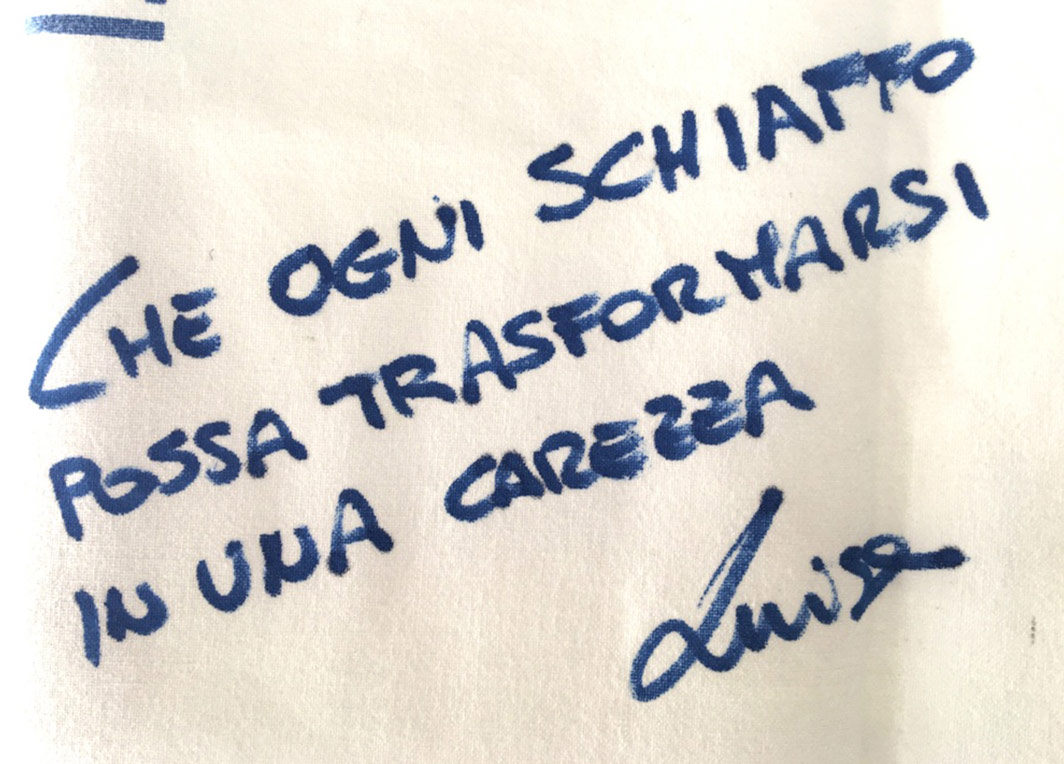 CHE OGNI SCHIAFFO
POSSA TRASFORMARSI
IN UNA CAREZZA
Luisa